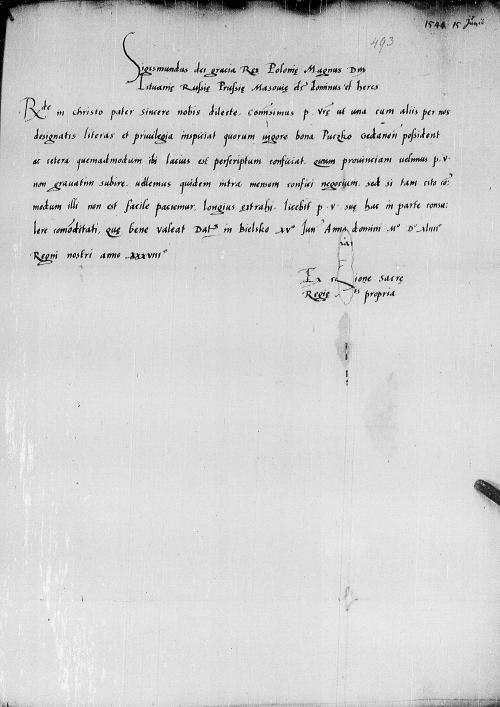 1544 15 Junii
493
Sigismundus dei gracia Rex Polonię Magnus Dux
Lituanię Russię Prussię Masovię etc dominus et heres
Rde in christo pater sincere nobis dilecte. Comisimus p. vrę ut una cum aliis per nos
designatis literas et privilegia inspiciat quorum vigore bona Puczko Gedanen possident
ac cetera quemadmodum ibi lacius est perscriptum conficiat. quam provinciam velimus p. v.
non gravatim subire. vellemus quidem intra mensem confici negocium. sed si tam cito com
modum illi non est facile paciemur longius extrahi. licebit p. v. suę hac in parte consu:
lere comoditati, quę bene valeat Dats in Bielsko xv Juny Anno domini Mo Do xliiiio
Regni nostri anno xxxviiio
Ex cione sacrę
Regię tis propria